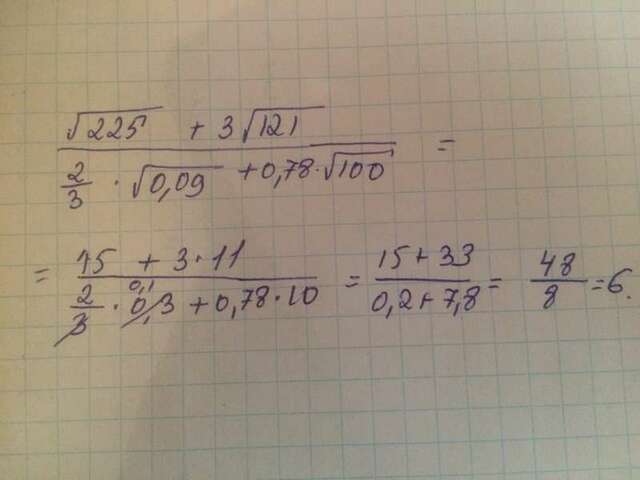 (√225 + 3√121) / (2/3 · √0,09 + 0,78·√100) =
= (15 + 3·11) / (2/3 · 0,3 0,1 + 0,78·10) = (15+33) / (0,2+7,8) = 48/8 = 6.